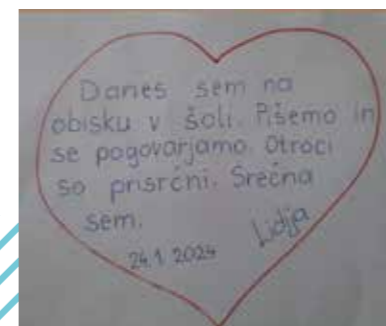 Danes sem na
obisku v šoli. Pišemo in
se pogovarjamo. Otroci
so prisrčni. Srečna
sem.
Lidija
24.1.2024